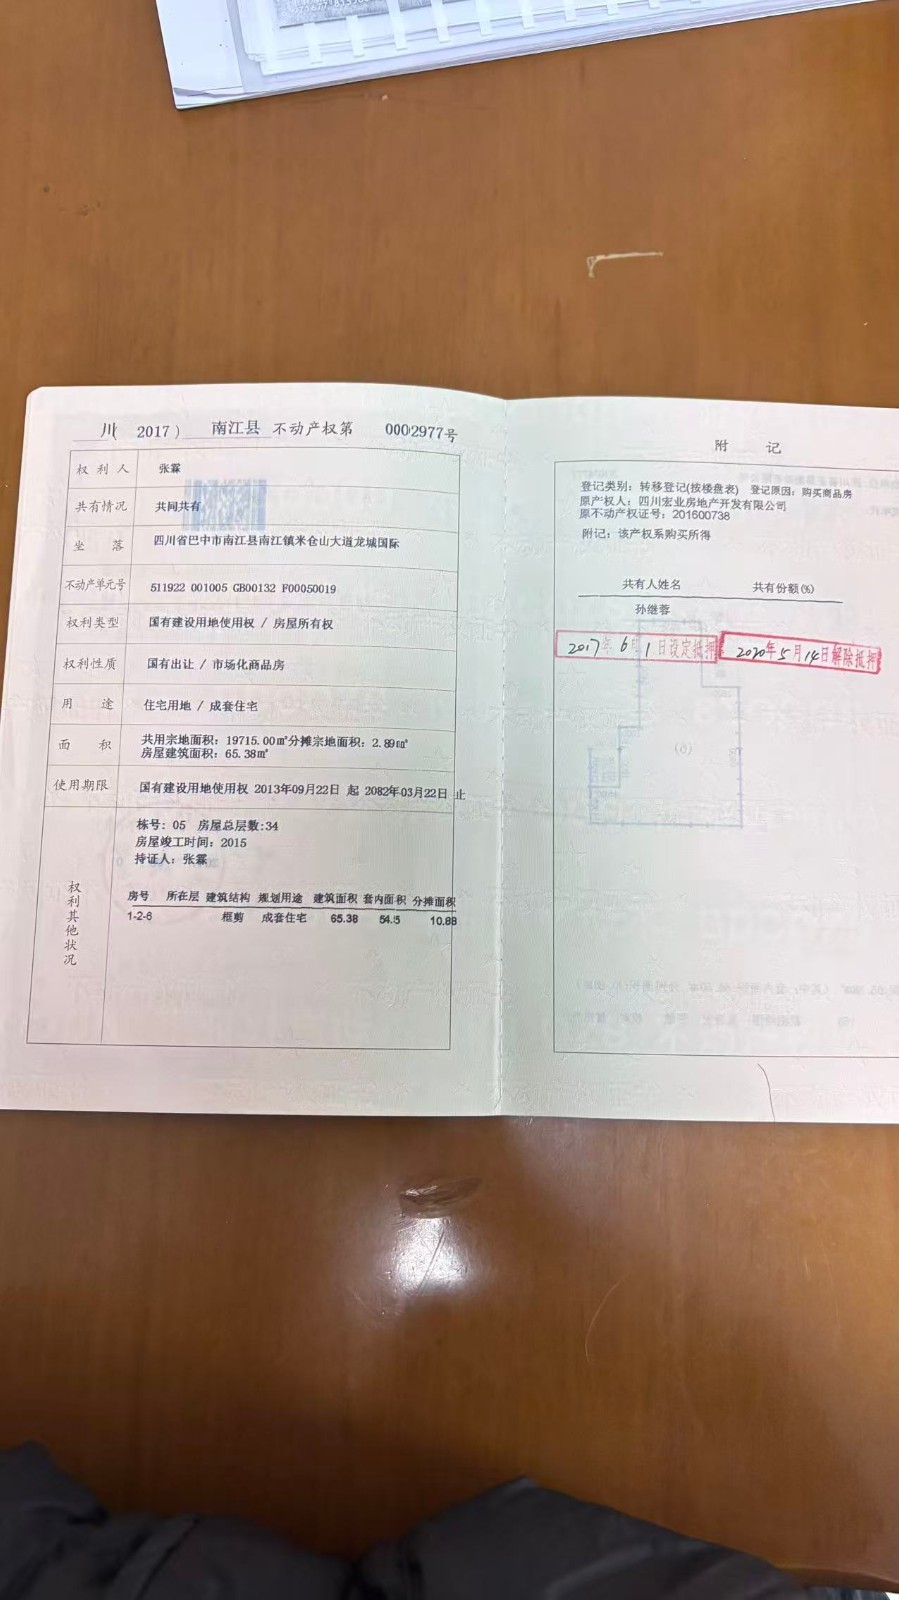 川( 2017) 南江县 不动产权第 0002977号
权利人 张霖
共有情况 共同共有
坐落 四川省巴中市南江县南江镇米仓山大道龙城国际
不动产单元号 511922 001005 GB00132 F00050019
权利类型 国有建设用地使用权 / 房屋所有权
权利性质 国有出让 / 市场化商品房
用途 住宅用地 / 成套住宅
面积 共用宗地面积：19715.00㎡分摊宗地面积：2.89㎡
房屋建筑面积：65.38㎡
使用期限 国有建设用地使用权 2013年09月22日 起 2082年03月22日 止
权利其他状况
栋号：05 房屋总层数:34
房屋竣工时间：2015
持证人：张霖
房号 所在层 建筑结构 规划用途 建筑面积 套内面积 分摊面积
1-2-6 框剪 成套住宅 65.38 54.5 10.88
附 记
登记类别：转移登记(按楼盘表) 登记原因：购买商品房
原产权人：四川宏业房地产开发有限公司
原不动产权证号：201600738
附记：该产权系购买所得
共有人姓名 共有份额(%)
孙继蓉
2017年6月1日设定抵押 2020年5月14日解除抵押
(6)